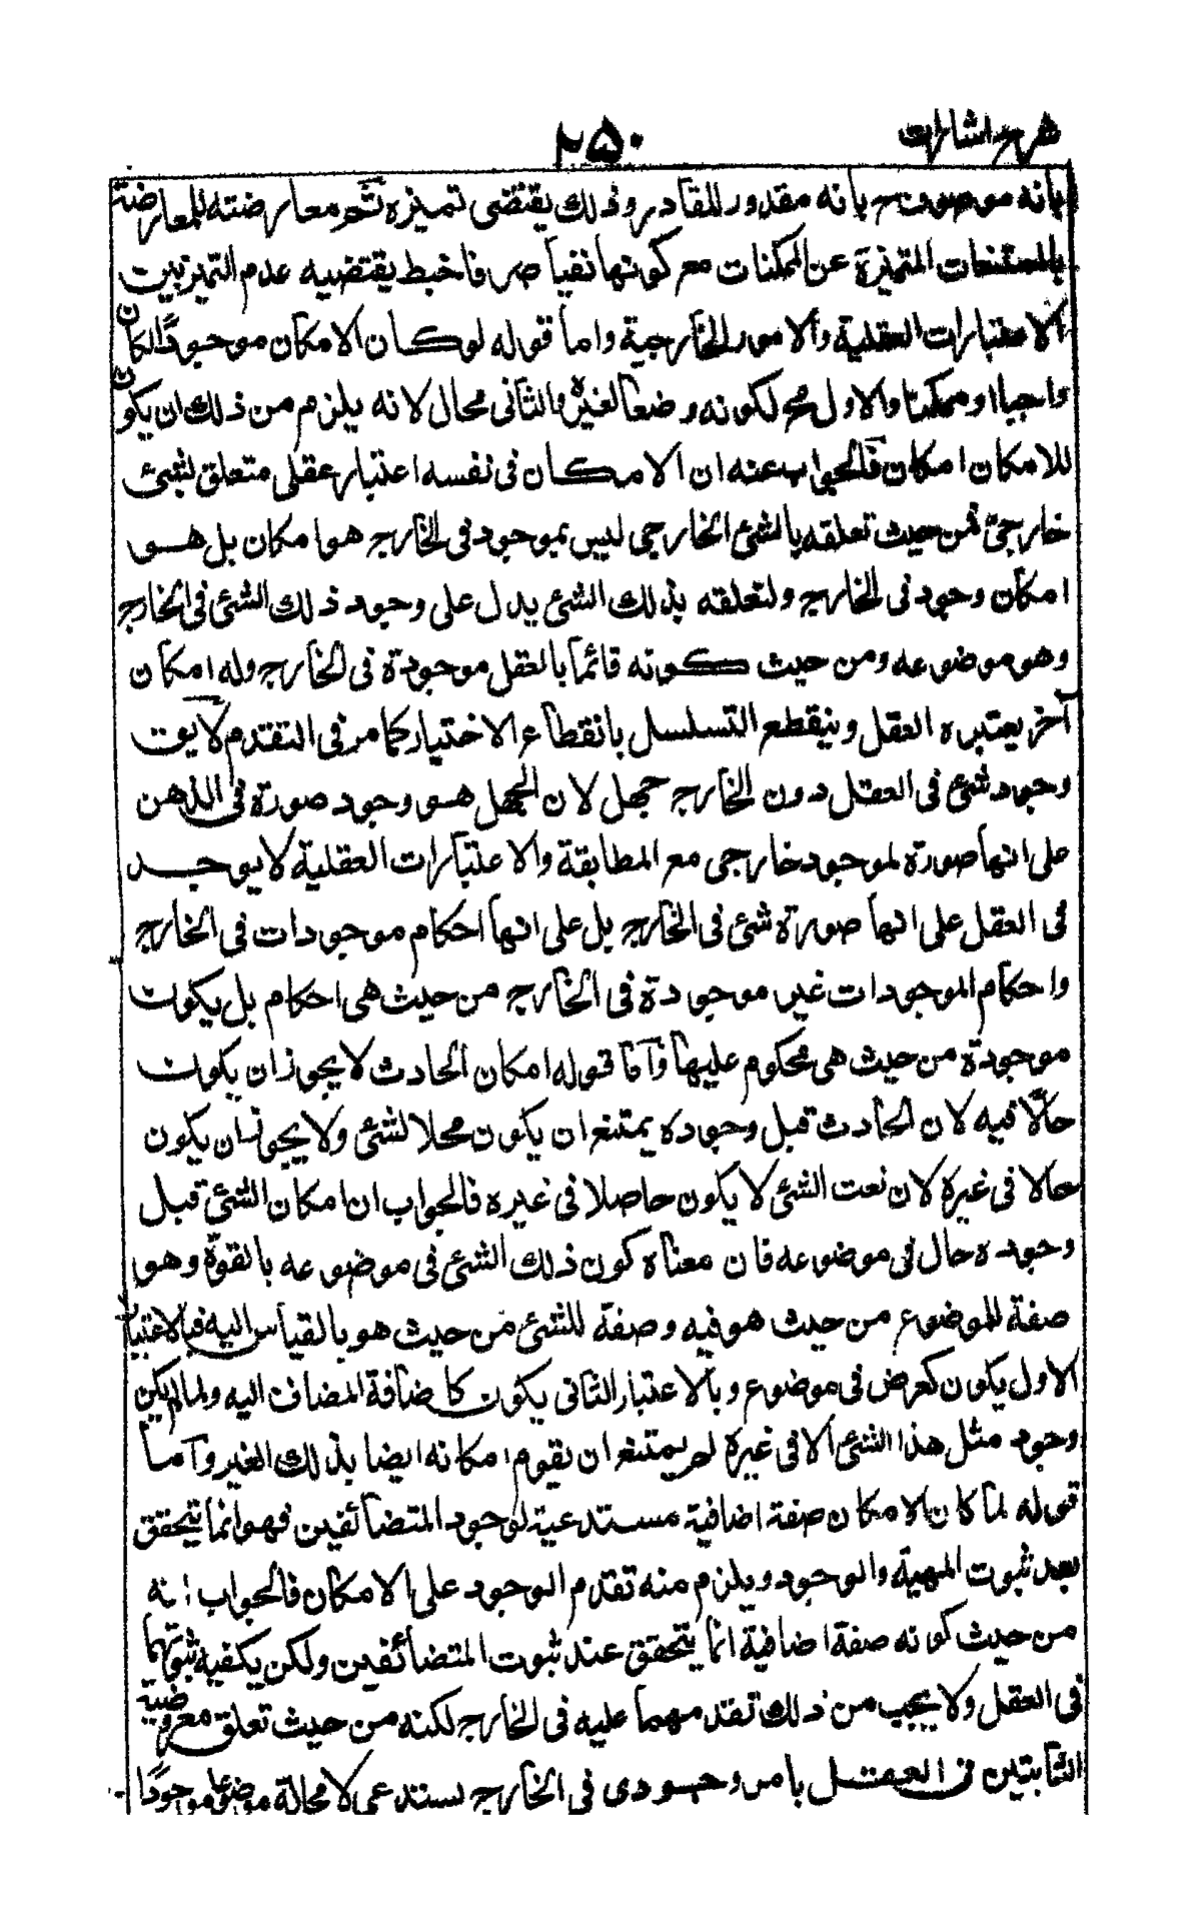 شرح اشارات
۲۵۰
بانه موصوف بانه مقدور للقادر وذلك يقتضى تميزه ثم معارضته للمعارضة
بالممتنعات المتميزة عن الممكنات مع كونها نفيا صرفا خبط يقتضيه عدم التميز بين
الاعتبارات العقلية والامور الخارجية واما قوله لو كان الامكان موجودا لكان
واجبا او ممكنا والاول مح لكونه وضعا لغيره والثانى محال لانه يلزم من ذلك ان يكون
للامكان امكان فالجواب عنه ان الامكان فى نفسه اعتبار عقلى متعلق لشئ
خارجىّ فمن حيث تعلقه بالشئ الخارجى ليس بموجود فى الخارج هو امكان بل هو
امكان وجود فى الخارج ولتعلقه بذلك الشئ يدل على وجود ذلك الشئ فى الخارج
وهو موضوعه ومن حيث كونه قائما بالعقل موجودة فى الخارج وله امكان
آخر يعتبره العقل وينقطع التسلسل بانقطاع الاختيار كما مر فى التقدم لا يق
وجود شئ فى العقل دون الخارج جهل لان الجهل هو وجود صورة فى الذهن
على انها صورة لموجود خارجى مع المطابقة والاعتبارات العقلية لا يوجد
فى العقل على انها صورة شئ فى الخارج بل على انها احكام موجودات فى الخارج
واحكام الموجودات غير موجودة فى الخارج من حيث هى احكام بل يكون
موجودة من حيث هى محكوم عليها وآما قوله امكان الحادث لا يجوز ان يكون
حالّا فيه لان الحادث قبل وجوده يمتنع ان يكون محلا لشئ ولا يجوز ان يكون
حالا فى غيره لان نعت الشئ لا يكون حاصلا فى غيره فالجواب ان امكان الشئ قبل
وجوده حال فى موضوعه فان معناه كون ذلك الشئ فى موضوعه بالقوّة وهو
صفة للموضوع من حيث هو فيه وصفة للشئ من حيث هو بالقياس اليه فبالاعتبار
الاول يكون كعرض فى موضوع وبالاعتبار الثانى يكون كاضافة المضاف اليه ولما لم يكن
وجود مثل هذا الشئ الا فى غيره لم يمتنع ان يقوم امكانه ايضا بذلك الغير وآما
قوله لما كان الامكان صفة اضافية مستدعية لوجود المتضائفين فهو انما يتحقق
بعد ثبوت المهية والوجود ويلزم منه تقدم الوجود على الامكان فالجواب انه
من حيث كونه صفة اضافية انما يتحقق عند ثبوت المتضائفين ولكن يكفيه ثبوتهما
فى العقل ولا يجب من ذلك تقدمهما عليه فى الخارج لكنه من حيث تعلق معروضيه
الثابتين فى العقل بامر وجودى فى الخارج يستدعى لا محالة موضوعا موجودًا